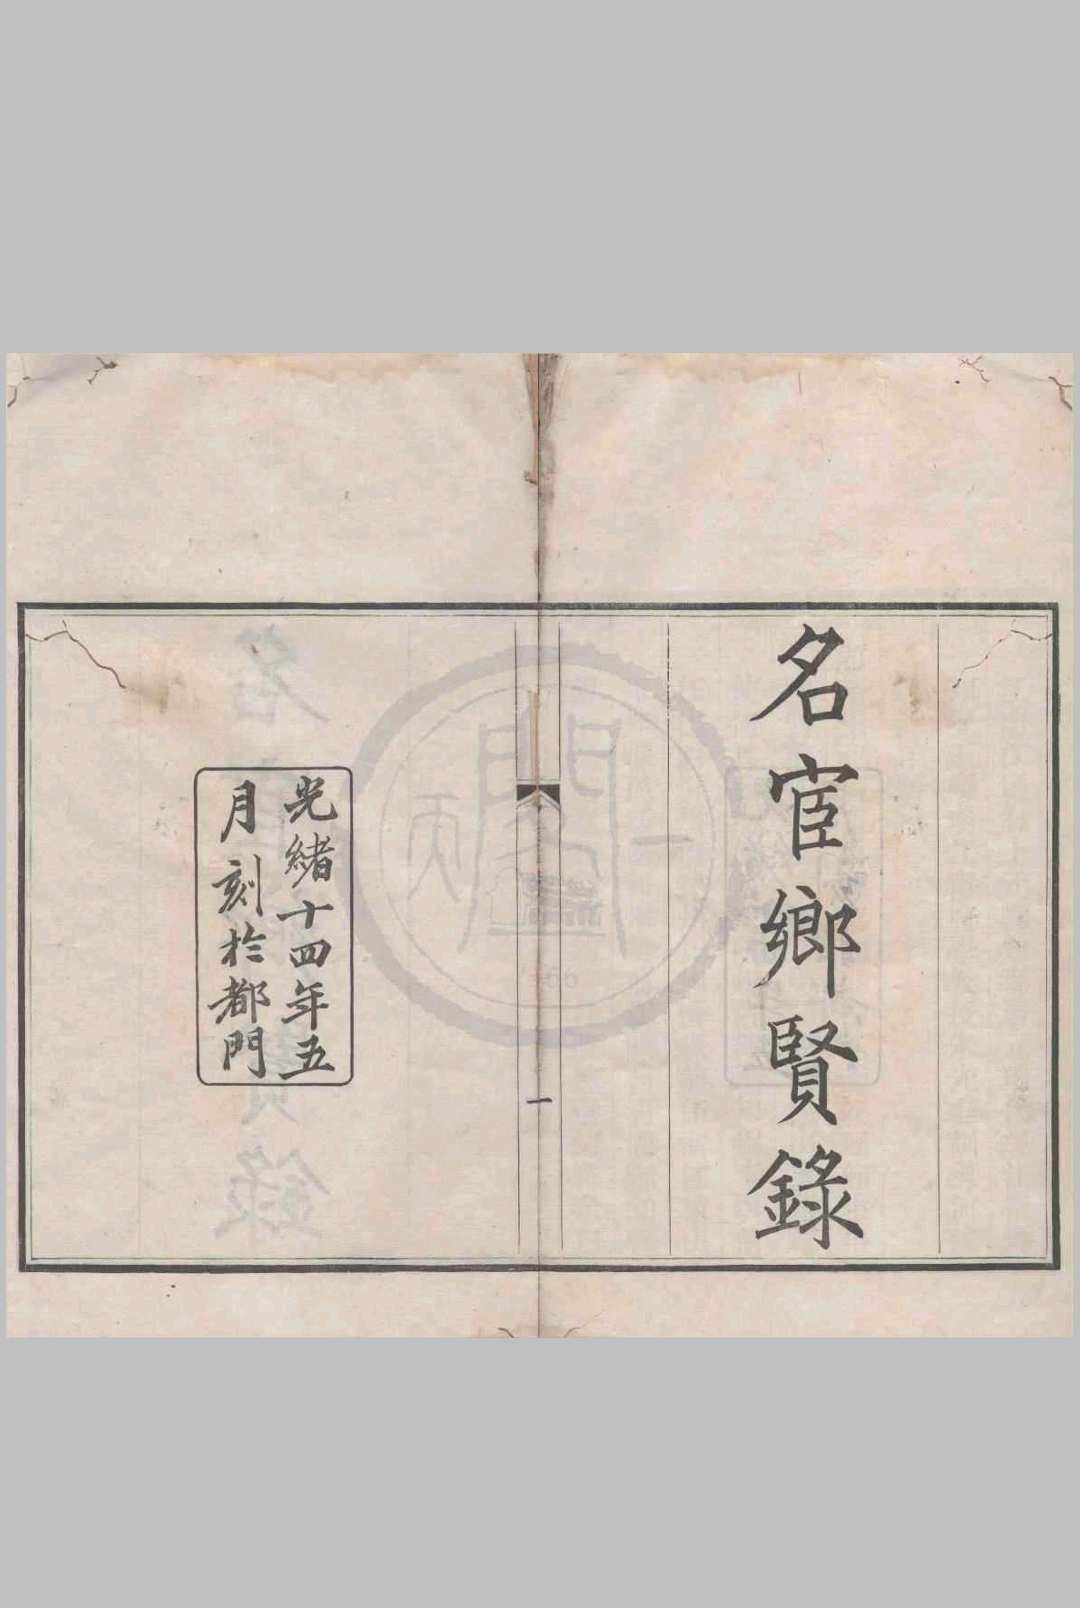 名宦鄉賢錄
一
光緒十四年五
月刻於都門